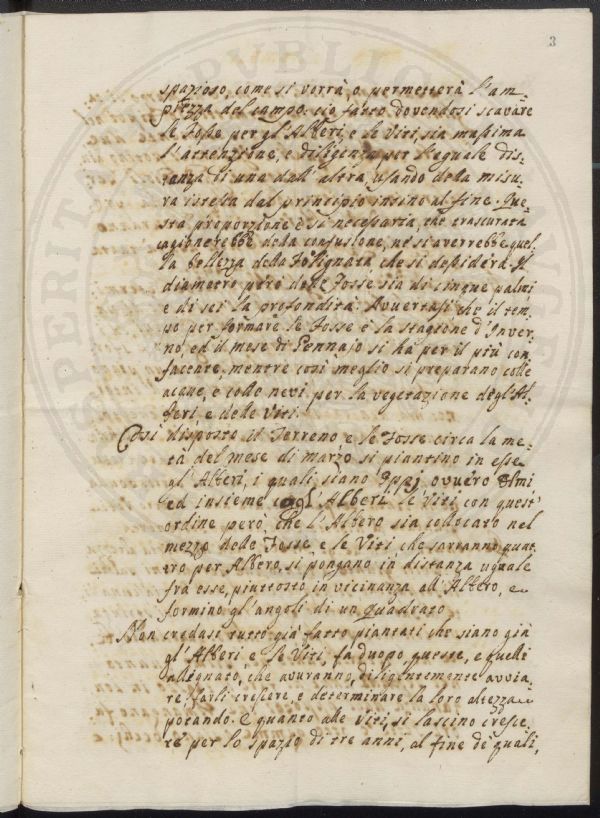 3
spazioso, come si vorrà, o permetterà l'am-
piezza del campo. ciò fatto dovendosi scavare
le fosse per gl'Alberi, e le Viti, sia massima
l'attenzione, e diligenza per l'eguale dis-
tanza di una dall'altra, usando della misu-
ra istessa dal principio insino al fine. Que-
sta proporzione è sì necessaria, che trascurata
cagionerebbe della confusione, ne si averrebbe quel-
la bellezza della che si desidera. Il
diametro però delle Fosse sia di cinque palmi
e di sei la profondità. Avvertasi che il tem-
po per formare le Fosse è la stagione d'Inver-
no, ed il mese di Gennajo si ha per il più con-
facente, mentre così meglio si preparano colle
acque, e colle nevi per la vegetazione degl'Al-
beri, e delle Viti.
Così disposto il Terreno e le Fosse circa la me-
tà del mese di marzo si piantino in esse
gl'Alberi, i quali siano Oppj ovvero Olmi
ed insieme cogl'Alberi le Viti con quest'
ordine però, che l'Albero sia collocato nel
mezzo delle Fosse e le Viti che saranno quat-
tro per Albero, si pongano in distanza uguale
fra esse, piuttosto in vicinanza all'Albero, e
formino gl'angoli di un quadrato
Non credasi tutto già fatto piantati che siano già
gl'Alberi e le Viti, fa duopo, queste, e quelli
allignato, che avranno, diligentemente avvia-
re, farli crescere, e determinare la loro altezza
potando. E quanto alle Viti, si lascino cresce-
re per lo spazio di tre anni, al fine de' quali,